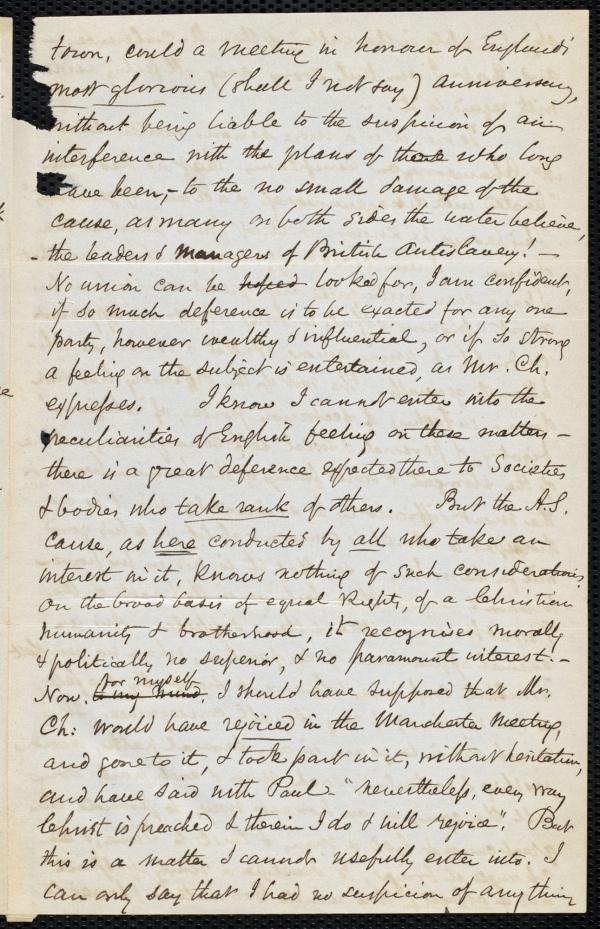 town, could a meeting in honour of England's
most glorious (shall I not say) anniversary,
without being liable to the suspicion of an
interference with the plans of those who long
have been, – to the no small damage of the
cause, as many on both sides the water believe,
– the leaders & managers of British Antislavery! –
No union can be hoped looked for, I am confident,
if so much deference is to be exacted for any one
party, however wealthy & influential, or if so strong
a feeling on the subject is entertained, as Mr. Ch.
expresses. I know I cannot enter into the
peculiarities of English feeling on these matters –
there is a great deference expected there to Societies
& bodies who take rank of others. But the A.S.
cause, as here conducted by all who take an
interest in it, knows nothing of such considerations.
On the broad basis of equal Rights, of a Christian
humanity & brotherhood, it recognises morally
& politically no superior, & no paramount interest. –
Now, to my mind, for myself, I should have supposed that Mr.
Ch: would have rejoiced in the Manchester Meeting,
and gone to it, & took part in it, without hesitation,
and have said with Paul "nevertheless, every way
Christ is preached & therein I do & will rejoice". But
this is a matter I cannot usefully enter into. I
can only say that I had no suspicion of anything